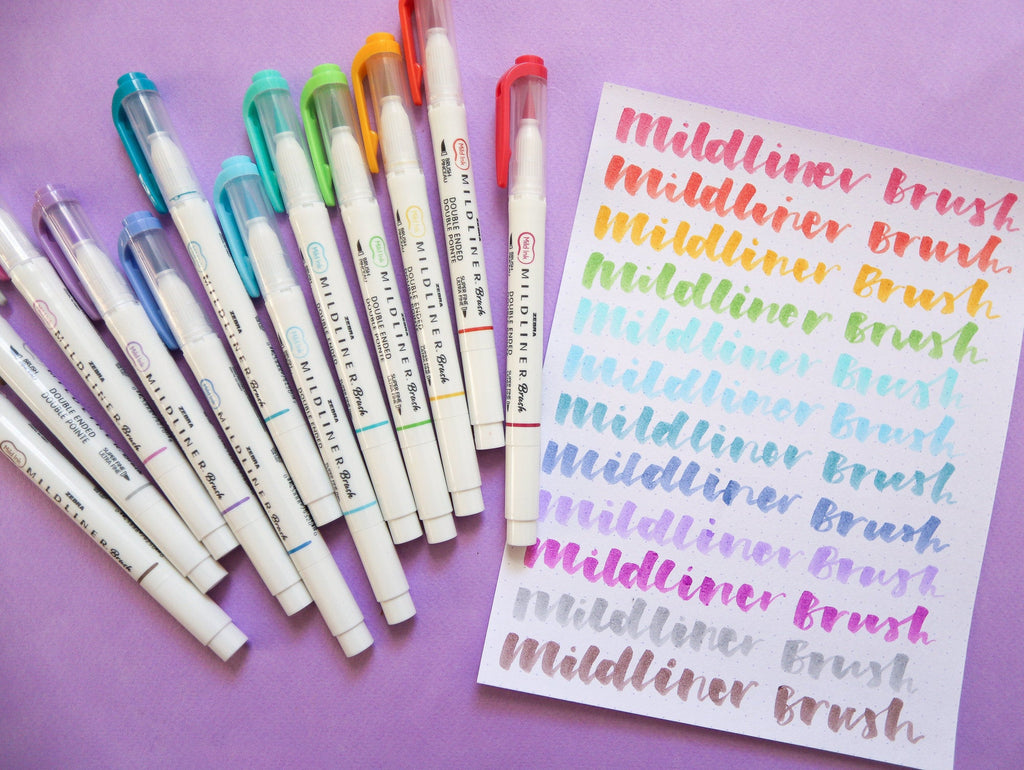 Mildliner Brush
Mildliner Brush
Mildliner Brush
Mildliner Brush
Mildliner Brush
Mildliner Brush
Mildliner Brush
Mildliner Brush
Mildliner Brush
Mildliner Brush
Mildliner Brush
Mildliner Brush
Mild Ink
MILDLINER Brush
ZEBRA
BRUSH
PINCEAU
DOUBLE ENDED
DOUBLE POINTE
SUPER FINE
ULTRA FINE